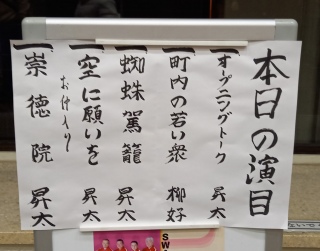 本日の演目
一 オープニングトーク 昇太
一 町内の若い衆 柳好
一 蜘蛛駕籠 昇太
一 空に願いを 昇太
お仲入り
一 崇徳院 昇太
SW